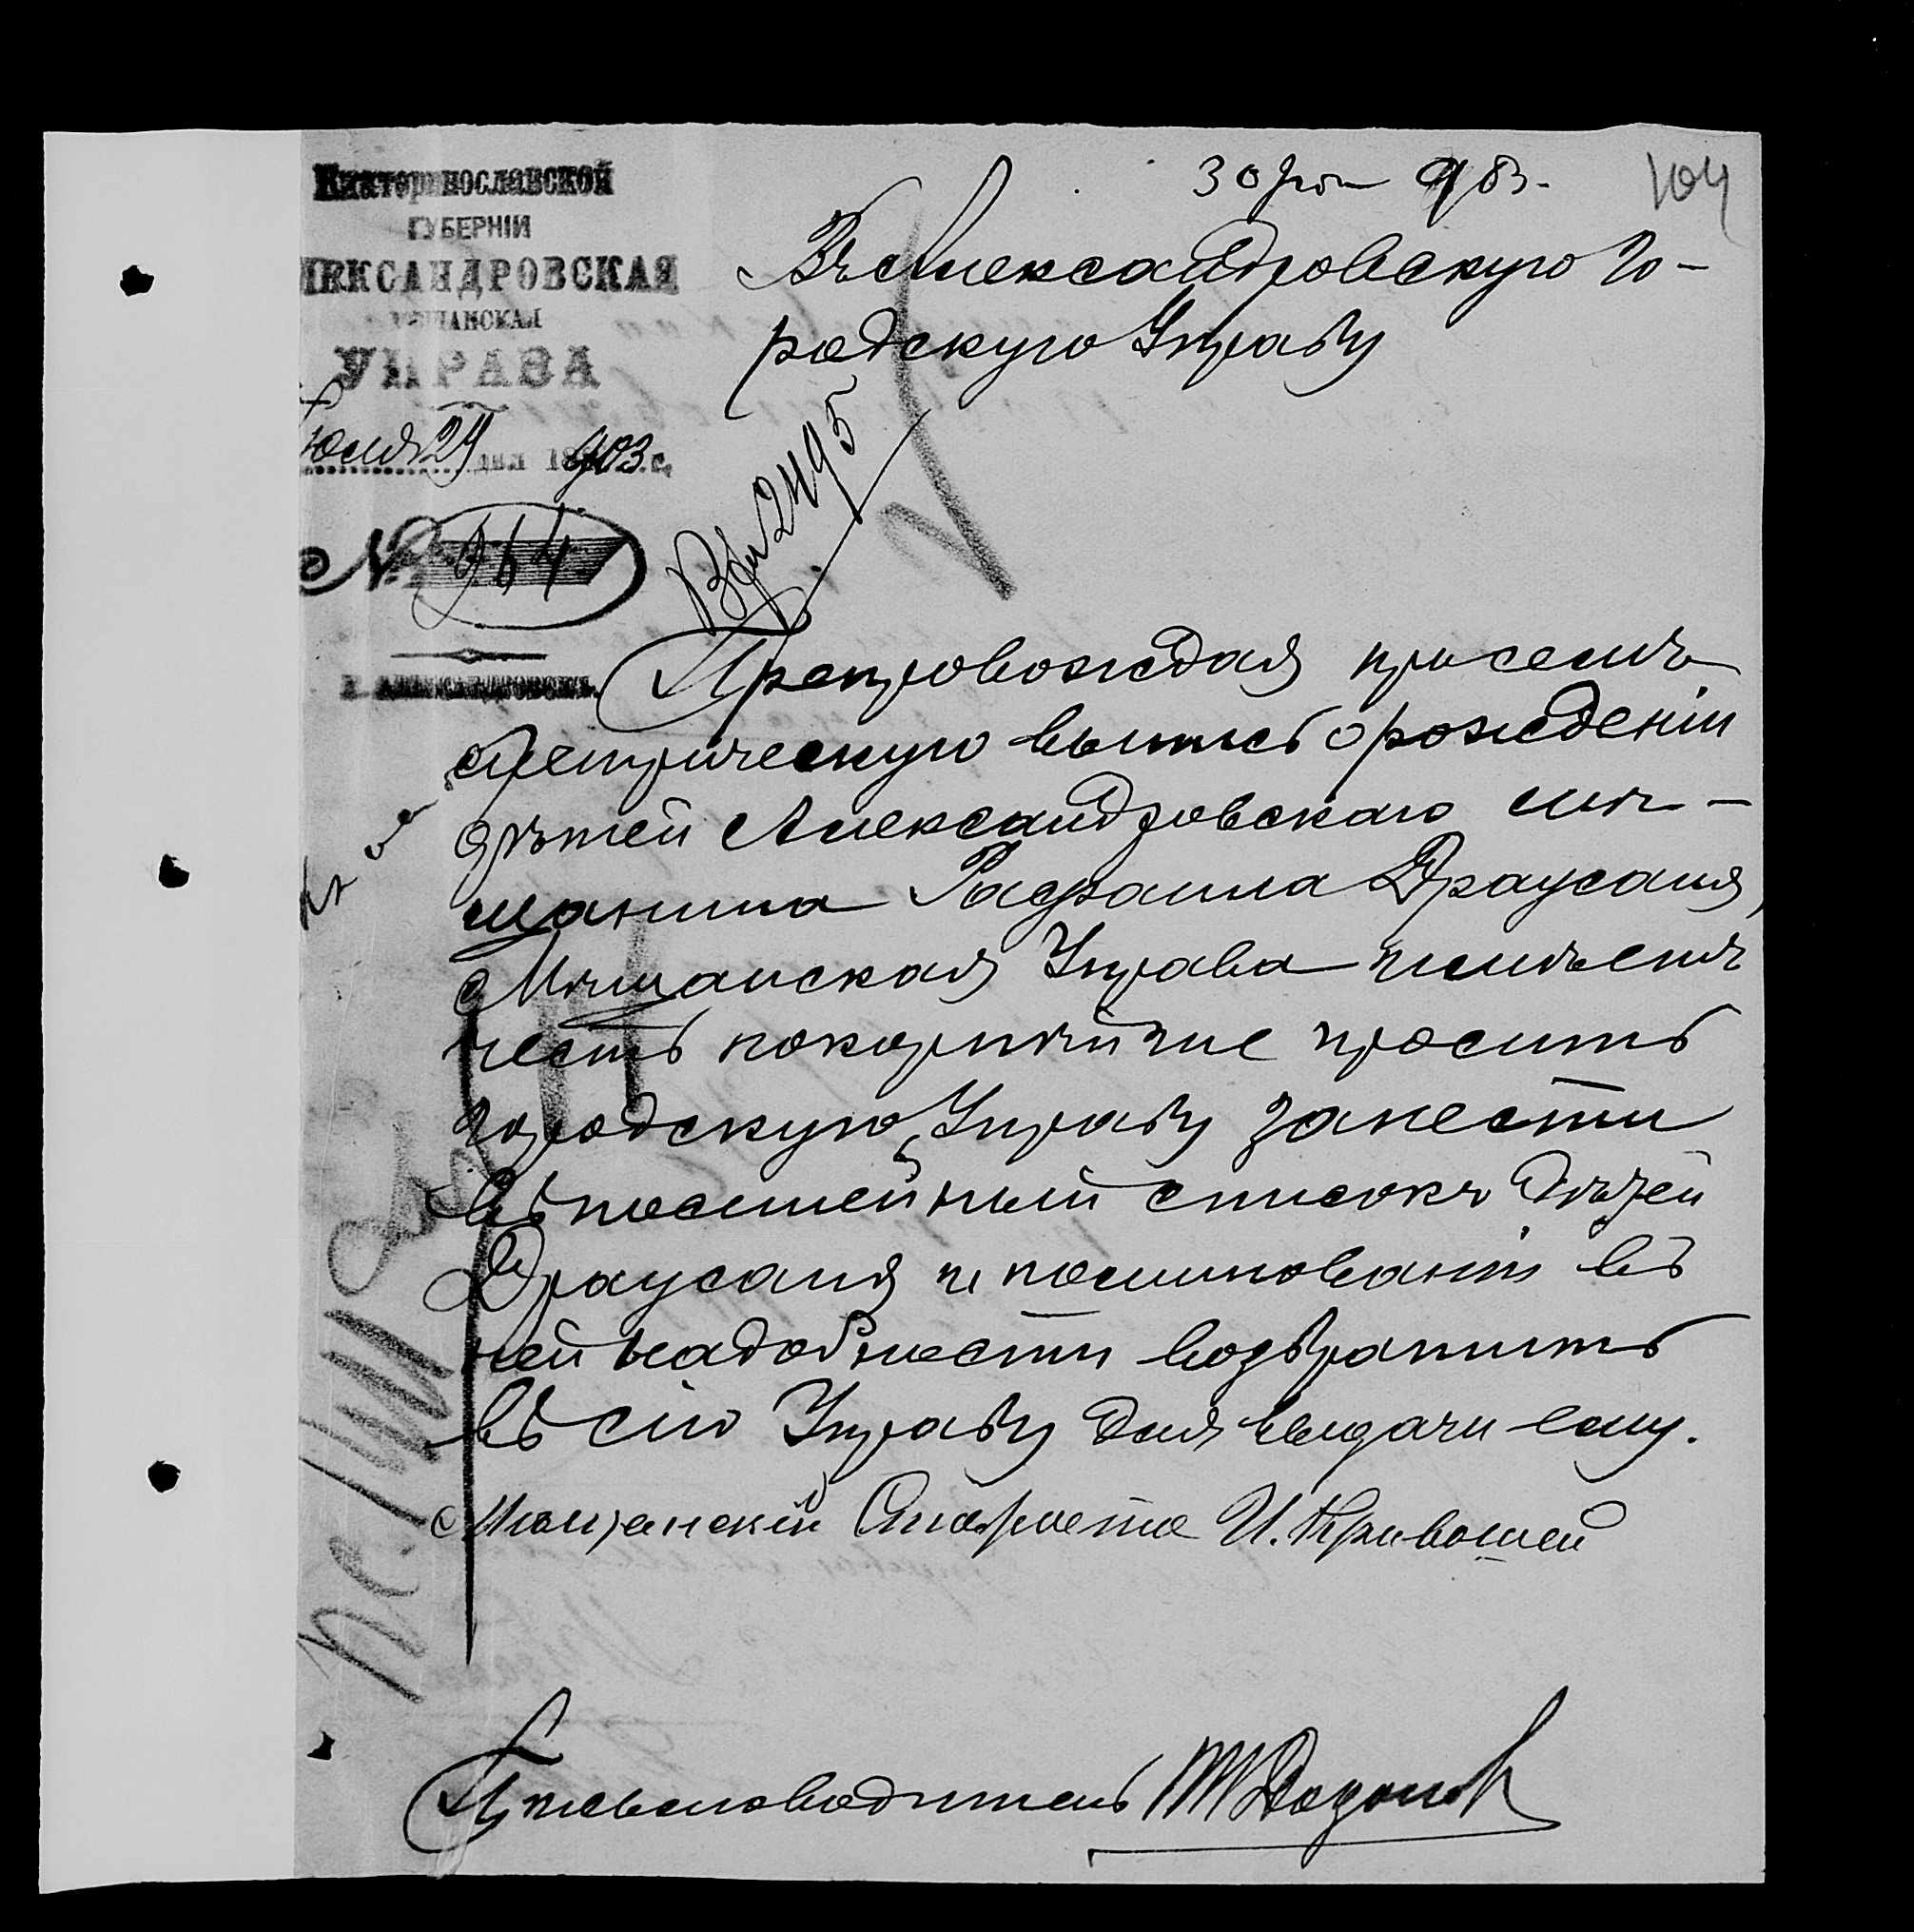 104
Екатеринославской
ГУБЕРНІИ
АЛЕКСАНДРОВСКАЯ
МѢЩАНСКАЯ
УПРАВА
Іюля 29 дня 1903 г.
№ 964
Г. АЛЕКСАНДРОВСКЪ.
Вх 2495
Въ Александровскую Го-
родскую Управу
Препровождая при семъ
метрическую выпись о рожденіи
дѣтей Александровскаго мѣ-
щанина Рафаила Драусаля,
Мѣщанская Управа имѣетъ
честь покорнѣйше просить
городскую Управу занести
въ посемейный списокъ дѣтей
Драусаля и по миновани въ
ней надобности возвратить
въ сію Управу для выдачи ему.
Мѣщанскій Староста И. Кривошей
Письмоводитель